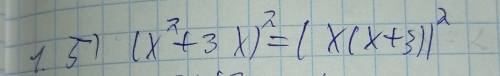 1. 5) (x²+3x)²=(x(x+3))²